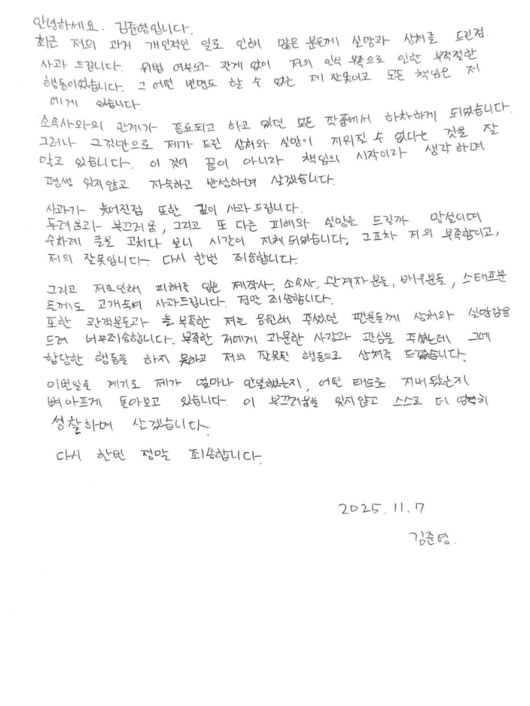 안녕하세요. 김준영입니다.
최근 저의 과거 개인적인 일로 인해 많은 분들께 실망과 상처를 드린점
사과 드립니다. 위법 여부와 관계 없이 저의 인식 부족으로 인한 부적절한
행동이었습니다. 그 어떤 변명도 할 수 없는 제 잘못이고 모든 책임은 저
에게 있습니다.
소속사와의 관계가 종료되고 하고 있던 모든 작품에서 하차하게 되었습니다.
그러나 그것만으로 제가 드린 상처와 실망이 지워질 수 없다는 것을 잘
알고 있습니다. 이 것이 끝이 아니라 책임의 시작이라 생각하며
평생 잊지않고 자숙하고 반성하며 살겠습니다.
사과가 늦어진점 또한 깊이 사과드립니다.
두려움과 부끄러움, 그리고 또 다른 피해와 실망을 드릴까 망설이며
수차례 글을 고치다 보니 시간이 지체 되었습니다, 그조차 저의 부족함이고,
저의 잘못입니다. 다시 한번 죄송합니다.
그리고 저로인해 피해를 입은 제작사, 소속사, 관계자분들, 배우분들, 스태프분
들께도 고개숙여 사과드립니다. 정말 죄송합니다.
또한 관객분들과 부족한 저를 응원해 주셨던 팬분들께 상처와 실망감을
드려 너무죄송합니다. 부족한 저에게 과분한 사랑과 관심을 주셨는데 그에
합당한 행동을 하지 못하고 저의 잘못된 행동으로 상처를 드렸습니다.
이번일을 계기로 제가 얼마나 안일했는지, 어떤 태도로 지내왔는지
뼈아프게 돌아보고 있습니다. 이 부끄러움을 잊지않고 스스로 더 엄격히
성찰하며 살겠습니다.
다시 한번 정말 죄송합니다.
2025.11.7
김준영.